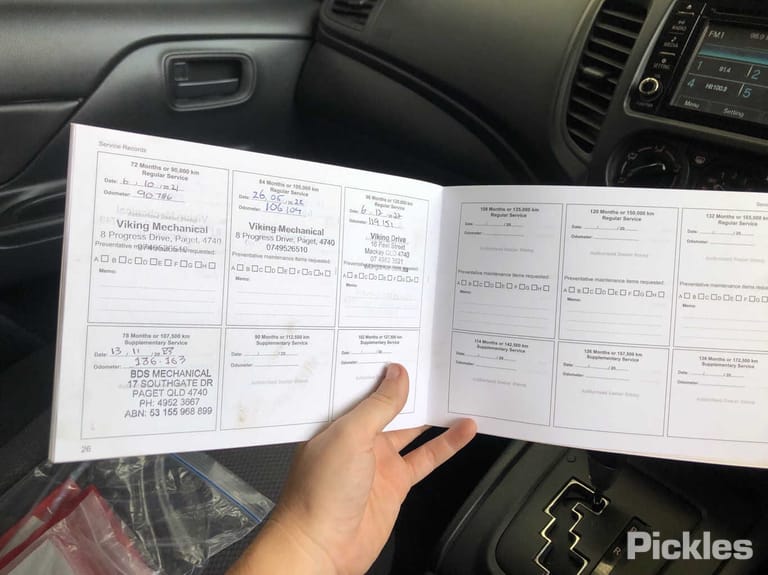 Service Records
72 Months or 90,000 km
Regular Service
Date: 6 / 10 / 2021
Odometer: 90786
Viking Mechanical
8 Progress Drive, Paget, 4740
0749526510
Preventative maintenance items requested:
A B C D E F G H
Memo:
84 Months or 105,000 km
Regular Service
Odometer: 106109
Viking Mechanical
8 Progress Drive, Paget, 4740
0749526510
Preventative maintenance items requested:
A B C D E F G H
Memo:
96 Months or 120,000 km
Regular Service
Viking Drive
Mackay QLD 4740
Preventative maintenance items requested:
A B C D E F G H
Memo:
78 Months or 107,500 km
Supplementary Service
Date: 13 / 11 / 20 23
Odometer: 136-163
BDS MECHANICAL
17 SOUTHGATE DR
PAGET QLD 4740
PH: 4952 3667
ABN: 53 155 968 899
90 Months or 112,500 km
Supplementary Service
Date: / / 20
Odometer:
Authorised Dealer Stamp
102 Months or 127,500 km
Supplementary Service
Date: / / 20
Odometer:
26
108 Months or 135,000 km
Regular Service
Date: / / 20
Odometer:
Authorised Dealer Stamp
Preventative maintenance items requested:
A B C D E F G H
Memo:
120 Months or 150,000 km
Regular Service
Date: / / 20
Odometer:
Authorised Dealer Stamp
Preventative maintenance items requested:
A B C D E F G H
Memo:
132 Months or 165,000
Regular Service
Date: / / 20
Odometer:
Authorised Dealer Stamp
Preventative maintenance items
A B C D E F G
Memo:
114 Months or 142,500 km
Supplementary Service
Date: / / 20
Odometer:
Authorised Dealer Stamp
126 Months or 157,500 km
Supplementary Service
Date: / / 20
Odometer:
Authorised Dealer Stamp
Supplementary Service
Date: / / 20
Odometer:
Authorised Dealer Stamp
RADIO
MEDIA
SETTING
FM1
1 91.4
2
4 Hit100.3
5
Menu
Setting
P
R
Pickles